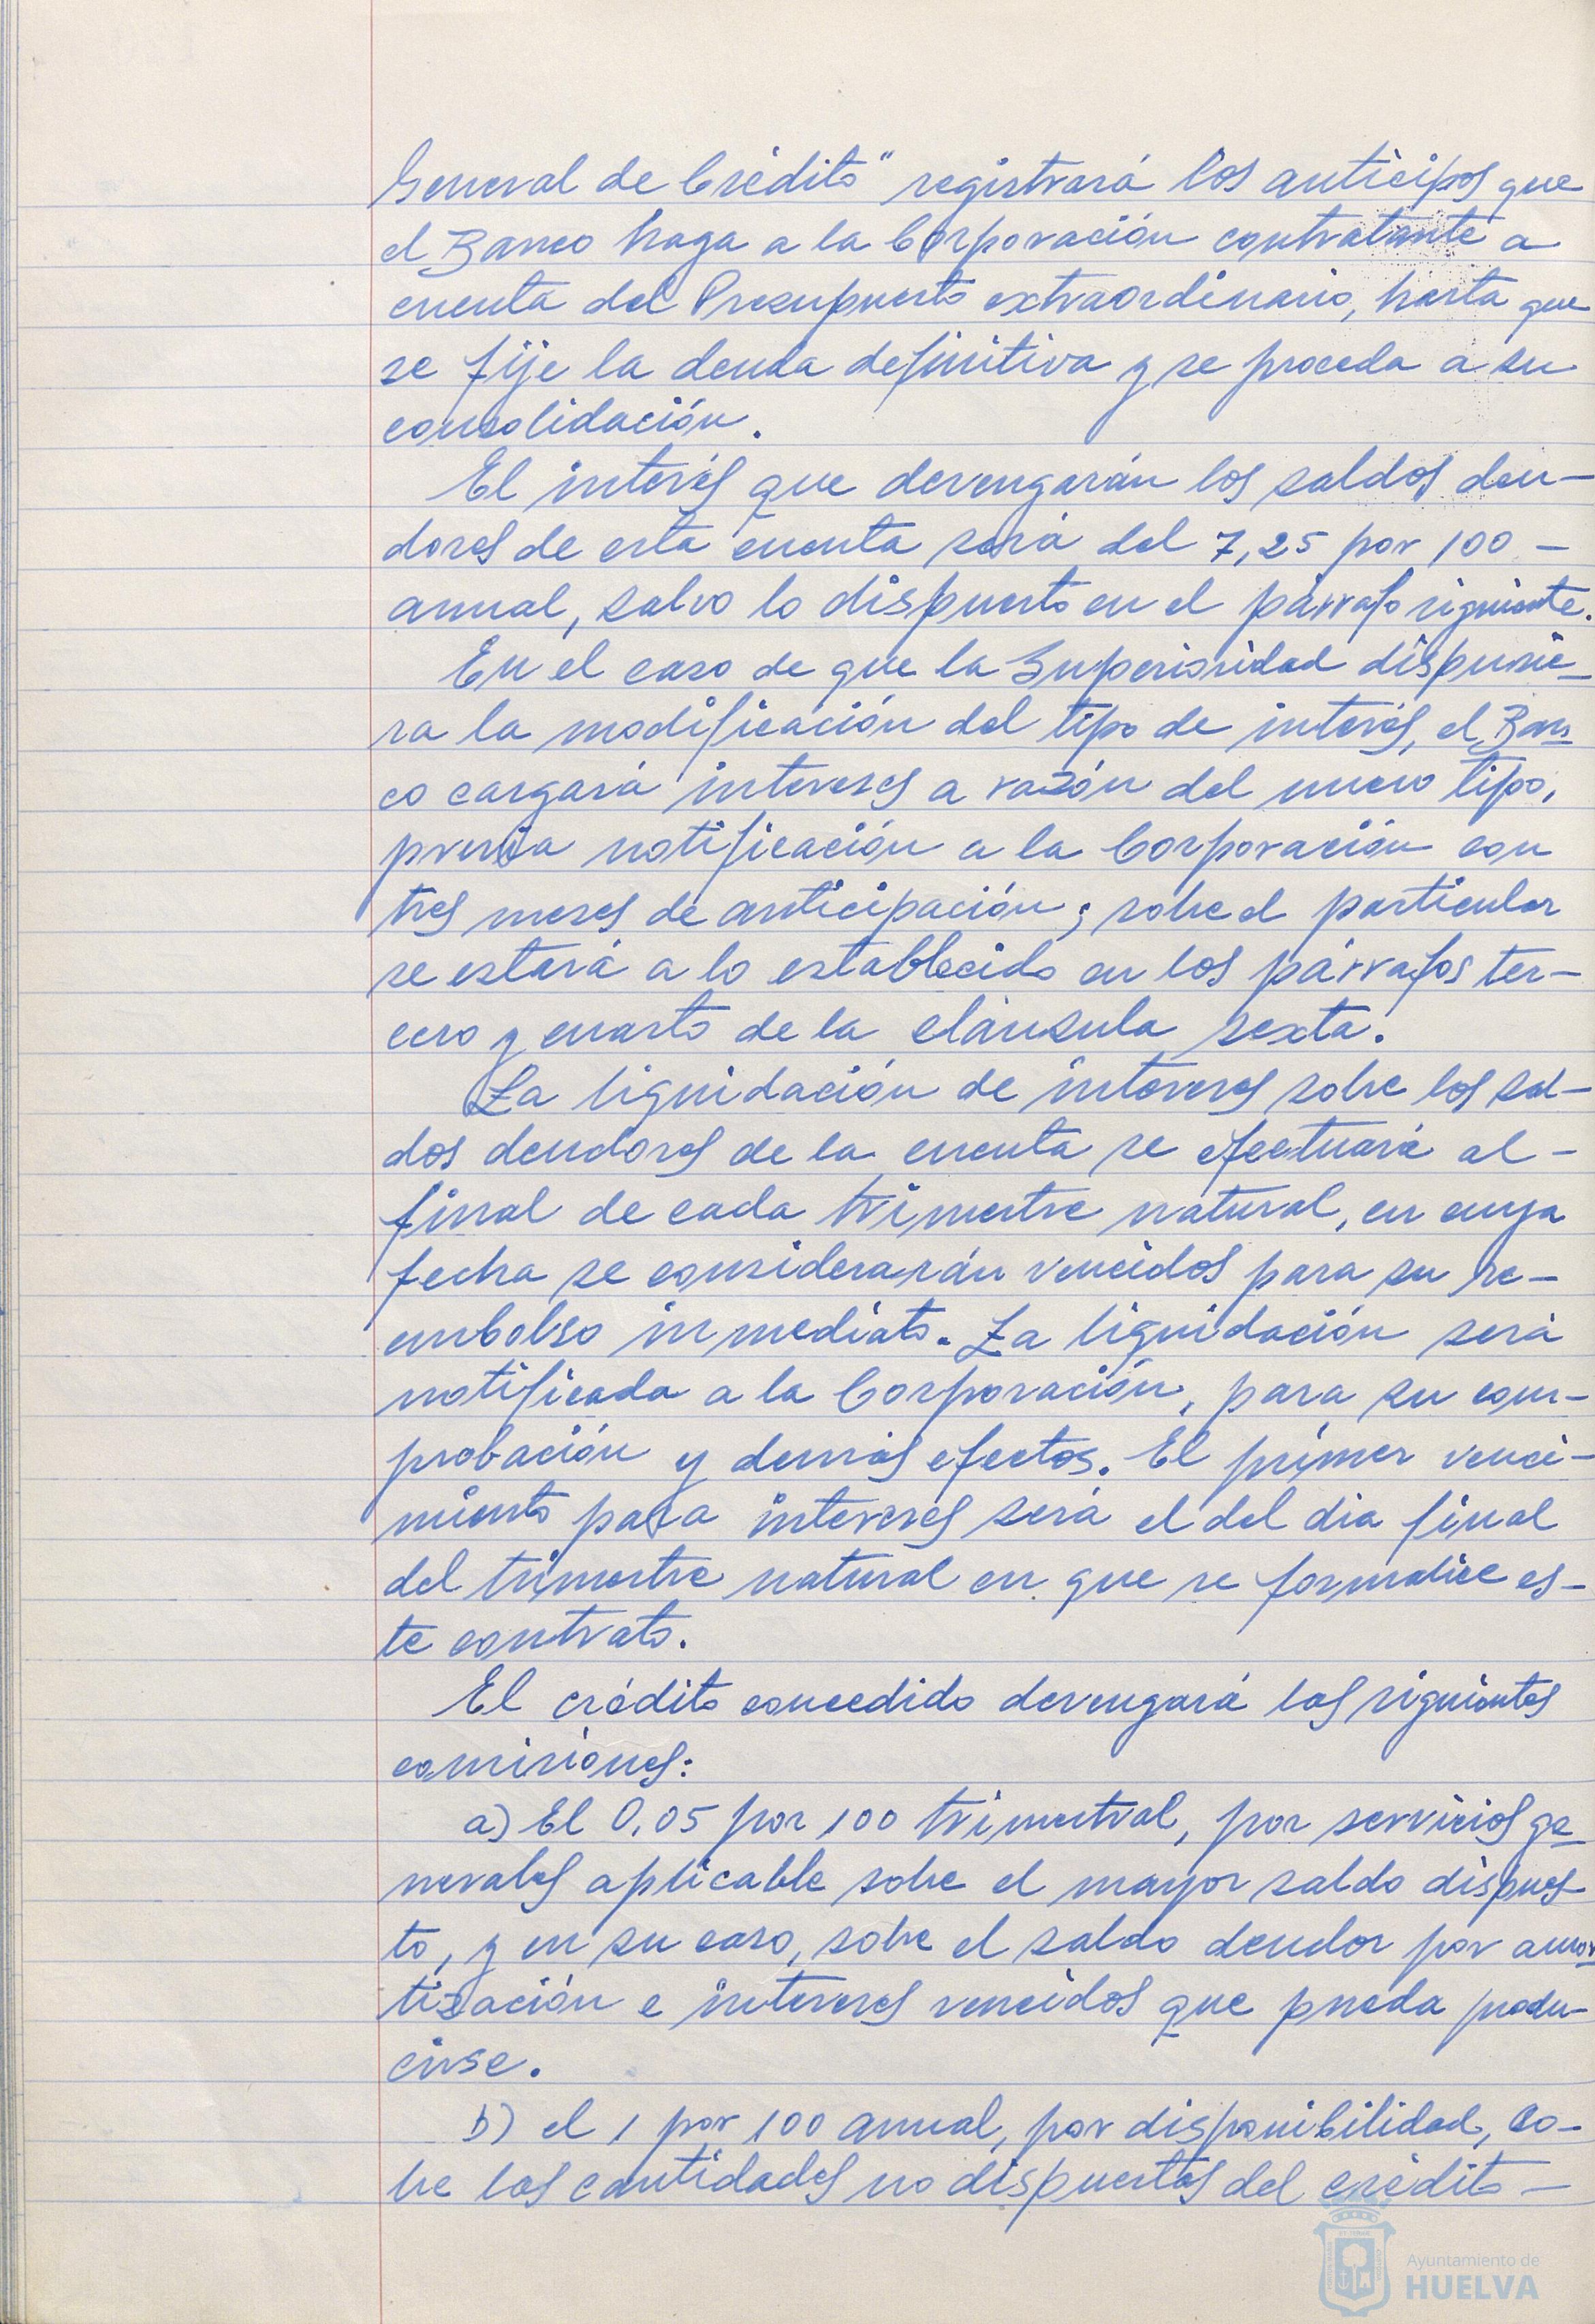 General de Crédito" registrará los anticipos que
el Banco haga a la Corporación contratante a
cuenta del Presupuesto extraordinario, hasta que
se fije la deuda definitiva y se proceda a su
consolidación.
El interés que devengarán los saldos deu-
dores de esta cuenta será del 7,25 por 100 -
anual, salvo lo dispuesto en el párrafo siguiente.
En el caso de que la Superioridad dispusie-
ra la modificación del tipo de interés, el Ban-
co cargará intereses a razón del nuevo tipo,
previa notificación a la Corporación con
tres meses de anticipación; sobre el particular
se estará a lo establecido en los párrafos ter-
cero y cuarto de la cláusula sexta.
La liquidación de intereses sobre los sal-
dos deudores de la cuenta se efectuará al -
final de cada trimestre natural, en cuya
fecha se considerarán vencidos para su re-
embolso inmediato. La liquidación será
notificada a la Corporación, para su com-
probación y demás efectos. El primer venci-
miento para intereses será el del dia final
del trimestre natural en que se formalice es-
te contrato.
El crédito concedido devengará las siguientes
comisiones:
a) El 0,05 por 100 trimestral, por servicios ge-
nerales aplicable sobre el mayor saldo dispues-
to, y en su caso, sobre el saldo deudor por amor-
tización e intereses vencidos que pueda produ-
cirse.
b) el 1 por 100 anual, por disponibilidad, so-
bre las cantidades no dispuestas del crédito -
Ayuntamiento de
HUELVA